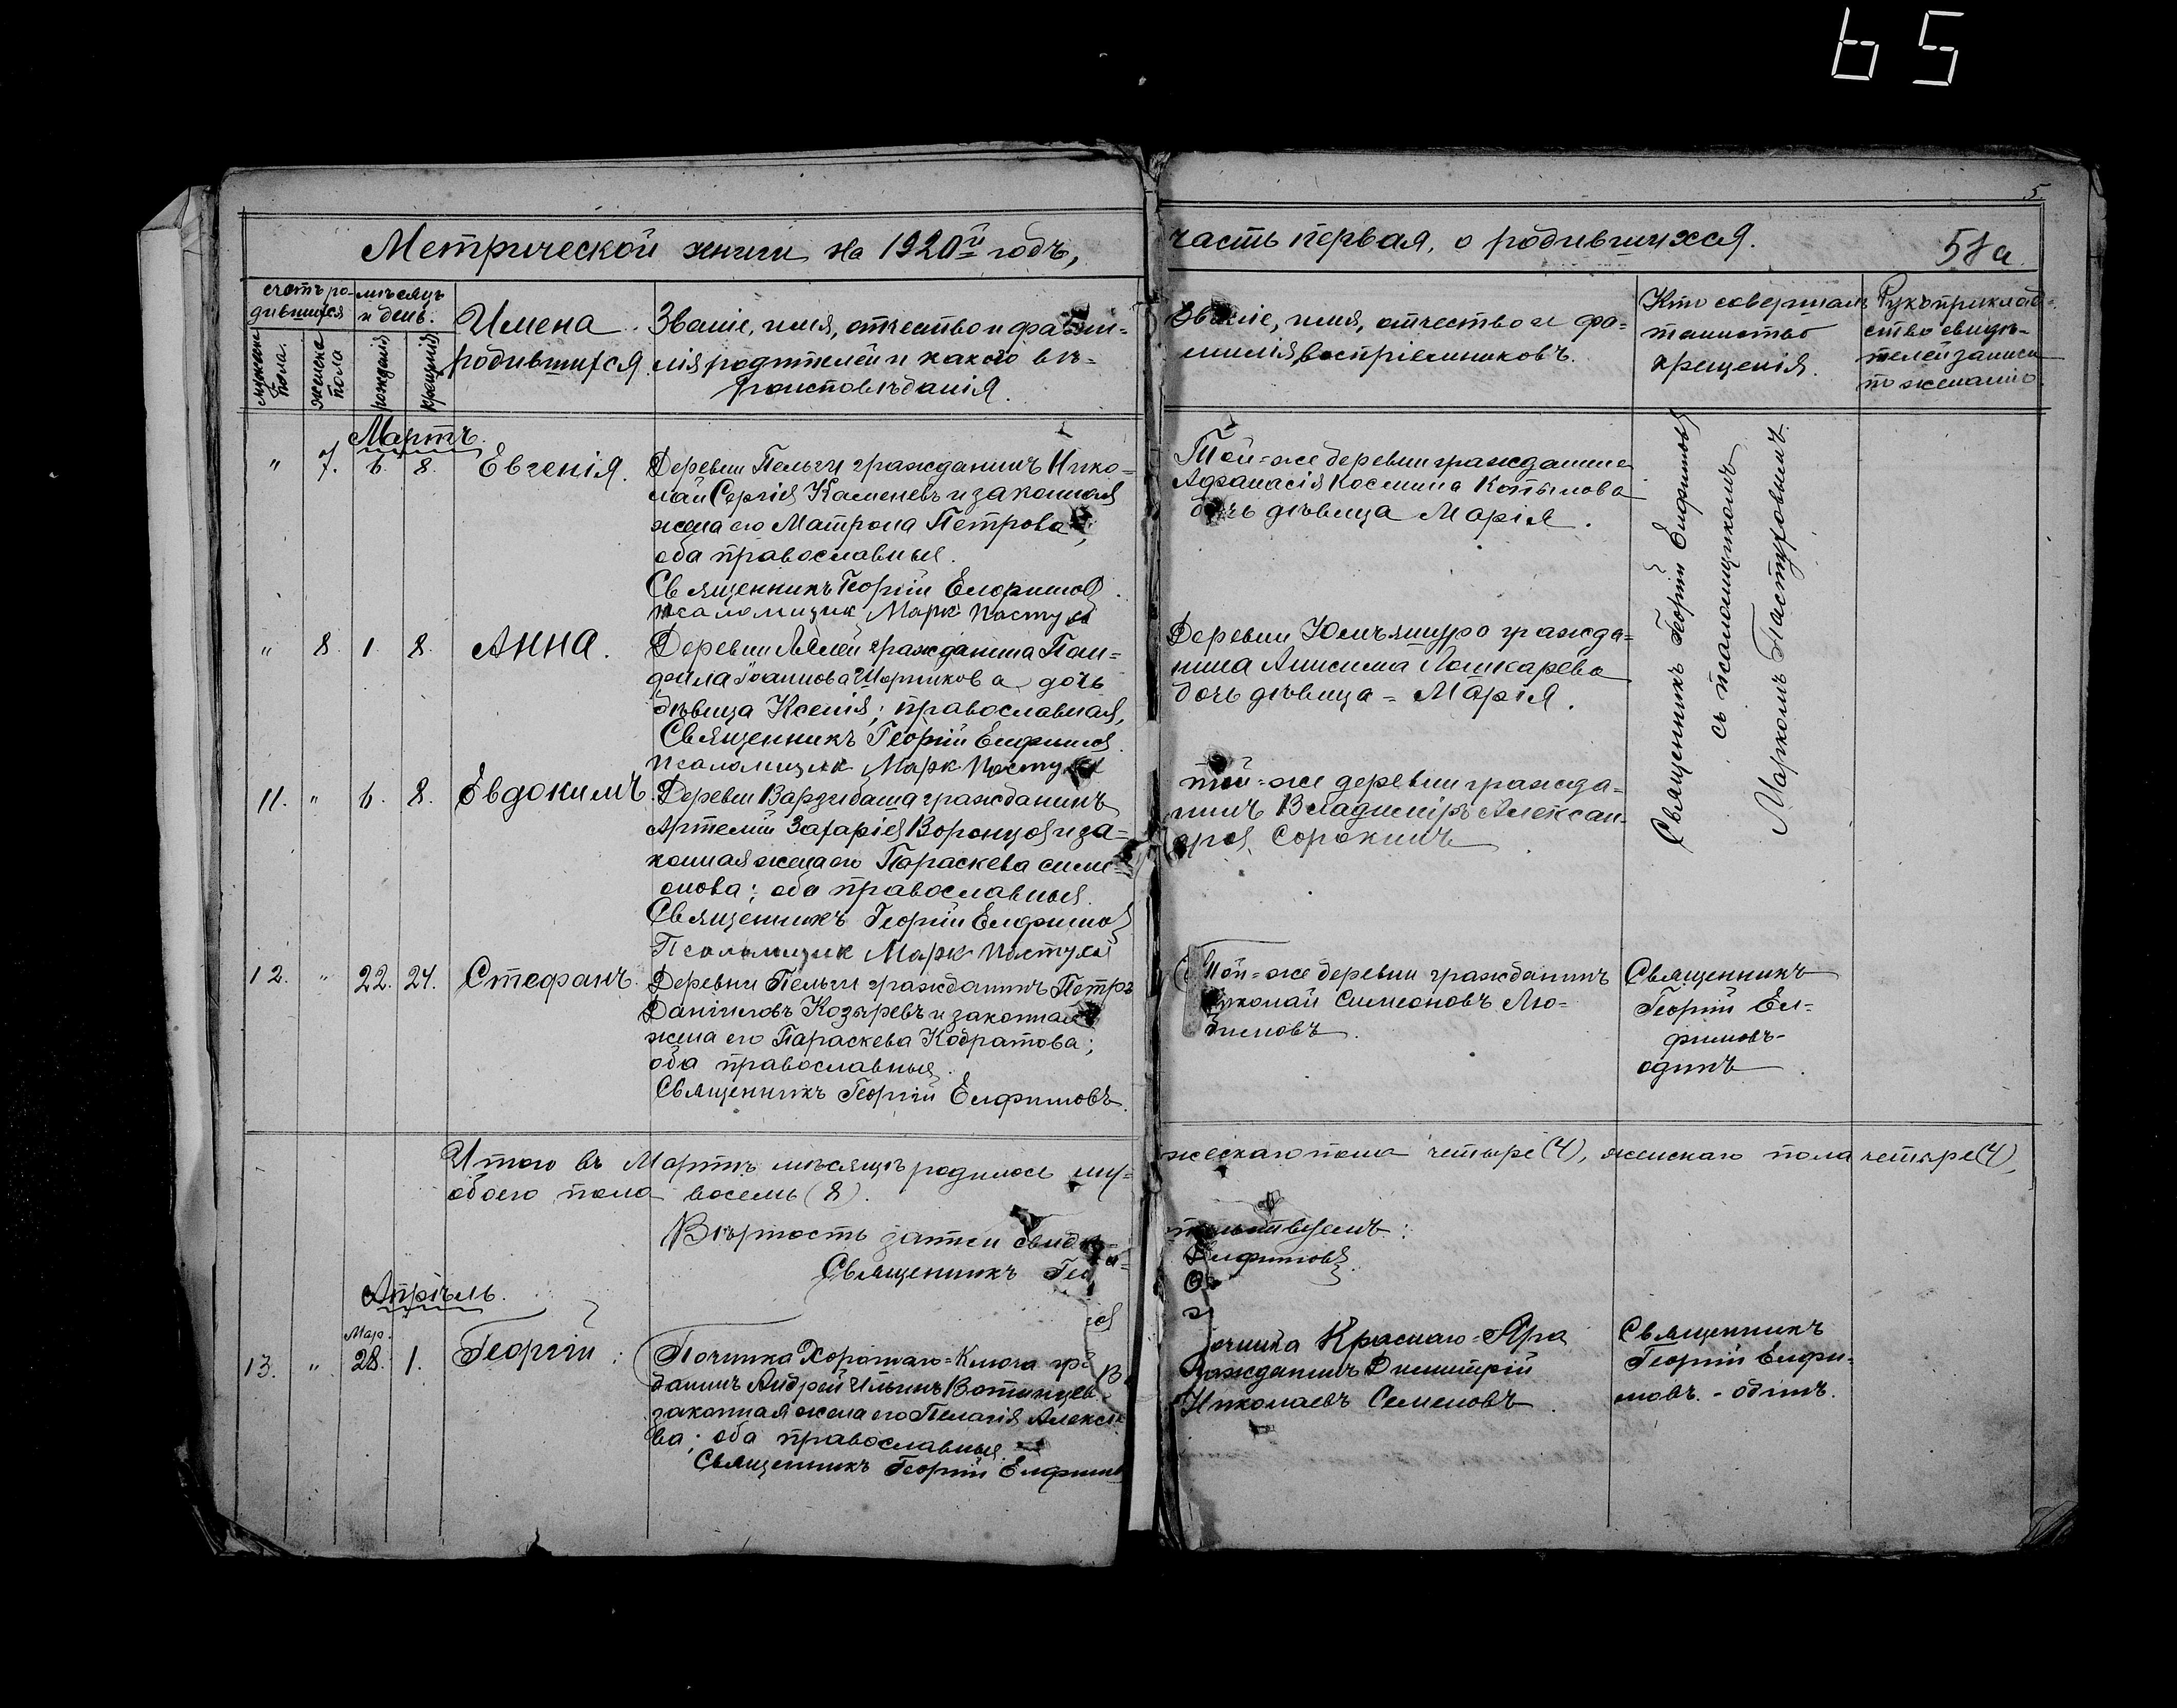 65
5.
Метрической книги на 1920й годъ,
часть первая, о родившихся.
58а.
счетъ ро-
дившихся
мѣсяцъ
и день.
Имена
родившихся
Званіе, имя, отчество и фами-
лія родителей и какого вѣ-
роисповѣданія.
Званіе, имя, отчество и фа-
милія воспріемниковъ.
Кто совершалъ
таинство
крещенія.
Рукоприклад-
ство свидѣ-
телей записи
по желанію.
мужска
пола.
женска
пола
рожденія
крещенія
Мартъ.
" 7. 6. 8. Евгенія.
Деревни Пельги гражданинъ Нико-
лай Сергіев Каменевъ и законная
жена его Матрона Петрова;
оба православныя.
Священникъ Георгій Елфимов.
Псаломщик Марк Пастухов
Той-же деревни гражданина
Афанасія Космина Копылова
дочь дѣвица Марія.
Священникъ Георгій Елфимовъ
съ псаломщикомъ
Маркомъ Пастуховымъ.
" 8. 1. 8. Анна.
Деревни гражданина Пан-
фила Іоаннова дочь
дѣвица Ксенія; православная,
Священникъ Георгій Елфимов.
Псаломщик Марк Пастухов
Деревни Юмъяшуро гражда-
нина Анисима Лошкарева
дочь дѣвица - Марія.
11. " 6. 8. Евдокимъ.
Деревни Варзибаша гражданинъ
Артемій Захаріев Воронцов и за-
конная жена его Параскева Симе-
онова; оба православныя.
Священникъ Георгій Елфимов
Псаломщик Марк Пастухов
Той-же деревни гражда-
нинъ Владиміръ Алексан-
дров Сорокинъ
12. " 22. 24. Стефанъ.
Деревни Пельги гражданинъ Петръ
Даниловъ Козыревъ и законная
жена его Параскева Кодратова;
оба православныя.
Священникъ Георгій Елфимовъ.
Той-же деревни гражданинъ
Николай Симеоновъ Лю-
Священникъ
Георгій Ел-
фимовъ-
одинъ.
Итого въ Мартѣ мѣсяцѣ родилось му-
жескаго пола четыре (4), женскаго пола четыре (4),
обоего пола восемь (8).
Вѣрность записи свидѣ-
тельствуемъ:
Священникъ Гео
Елфимовъ.
Апрѣль.
13. " Мар. 28. 1. Георгій:
Починка Хорошаго-Ключа гра
данинъ Андрей Ильинъ Вотинцев
законная жена его Пелагія Алексе
ва; оба православныя.
Священникъ Георгій Елфимов
очинка Краснаго-Яра
ражданинъ Димитрій
Николаевъ Семеновъ.
Священникъ
Георгій Елфи-
мовъ. - одинъ.